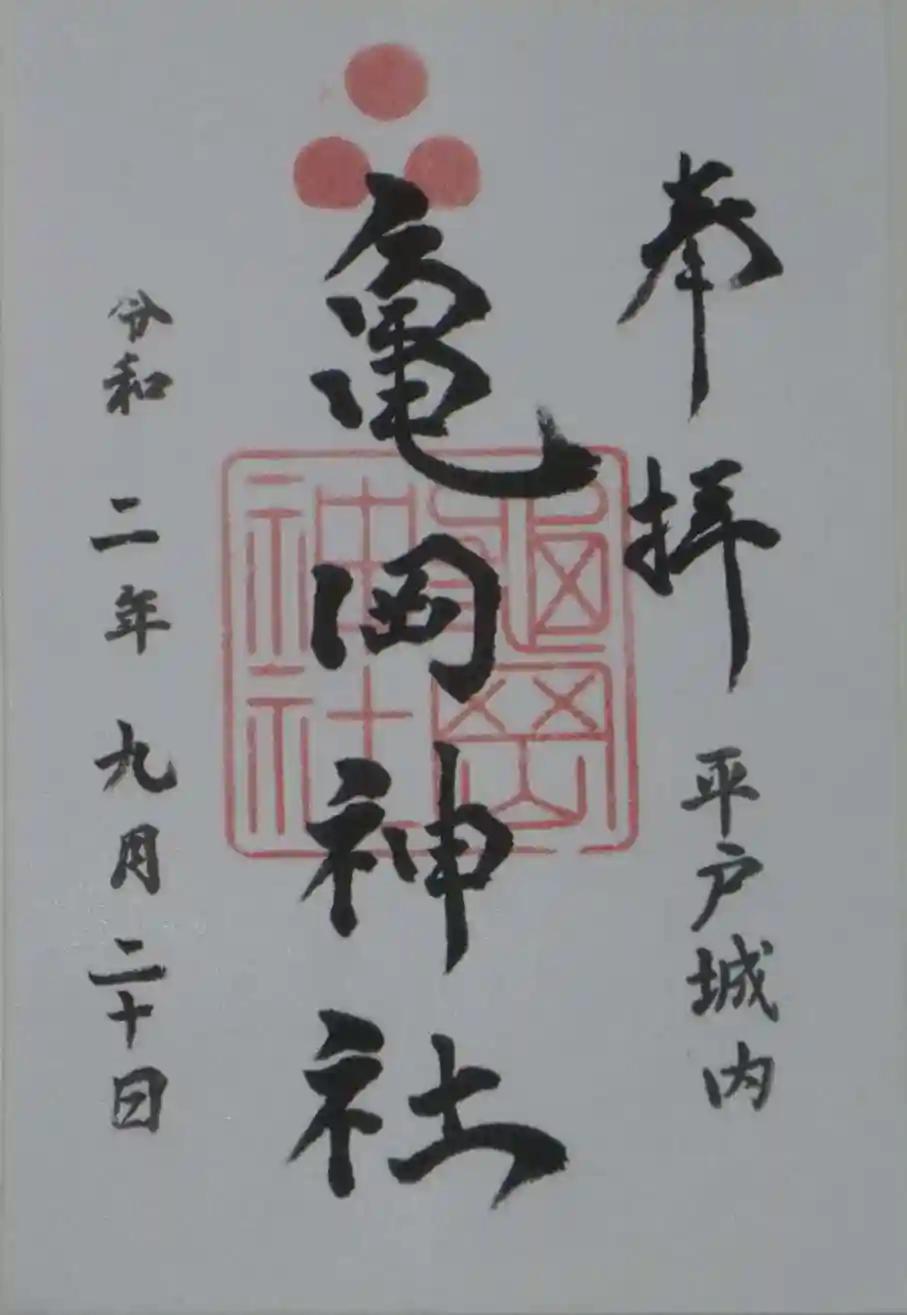 奉拝 平戸城内
亀岡神社
亀岡
神社
令和二年九月二十日